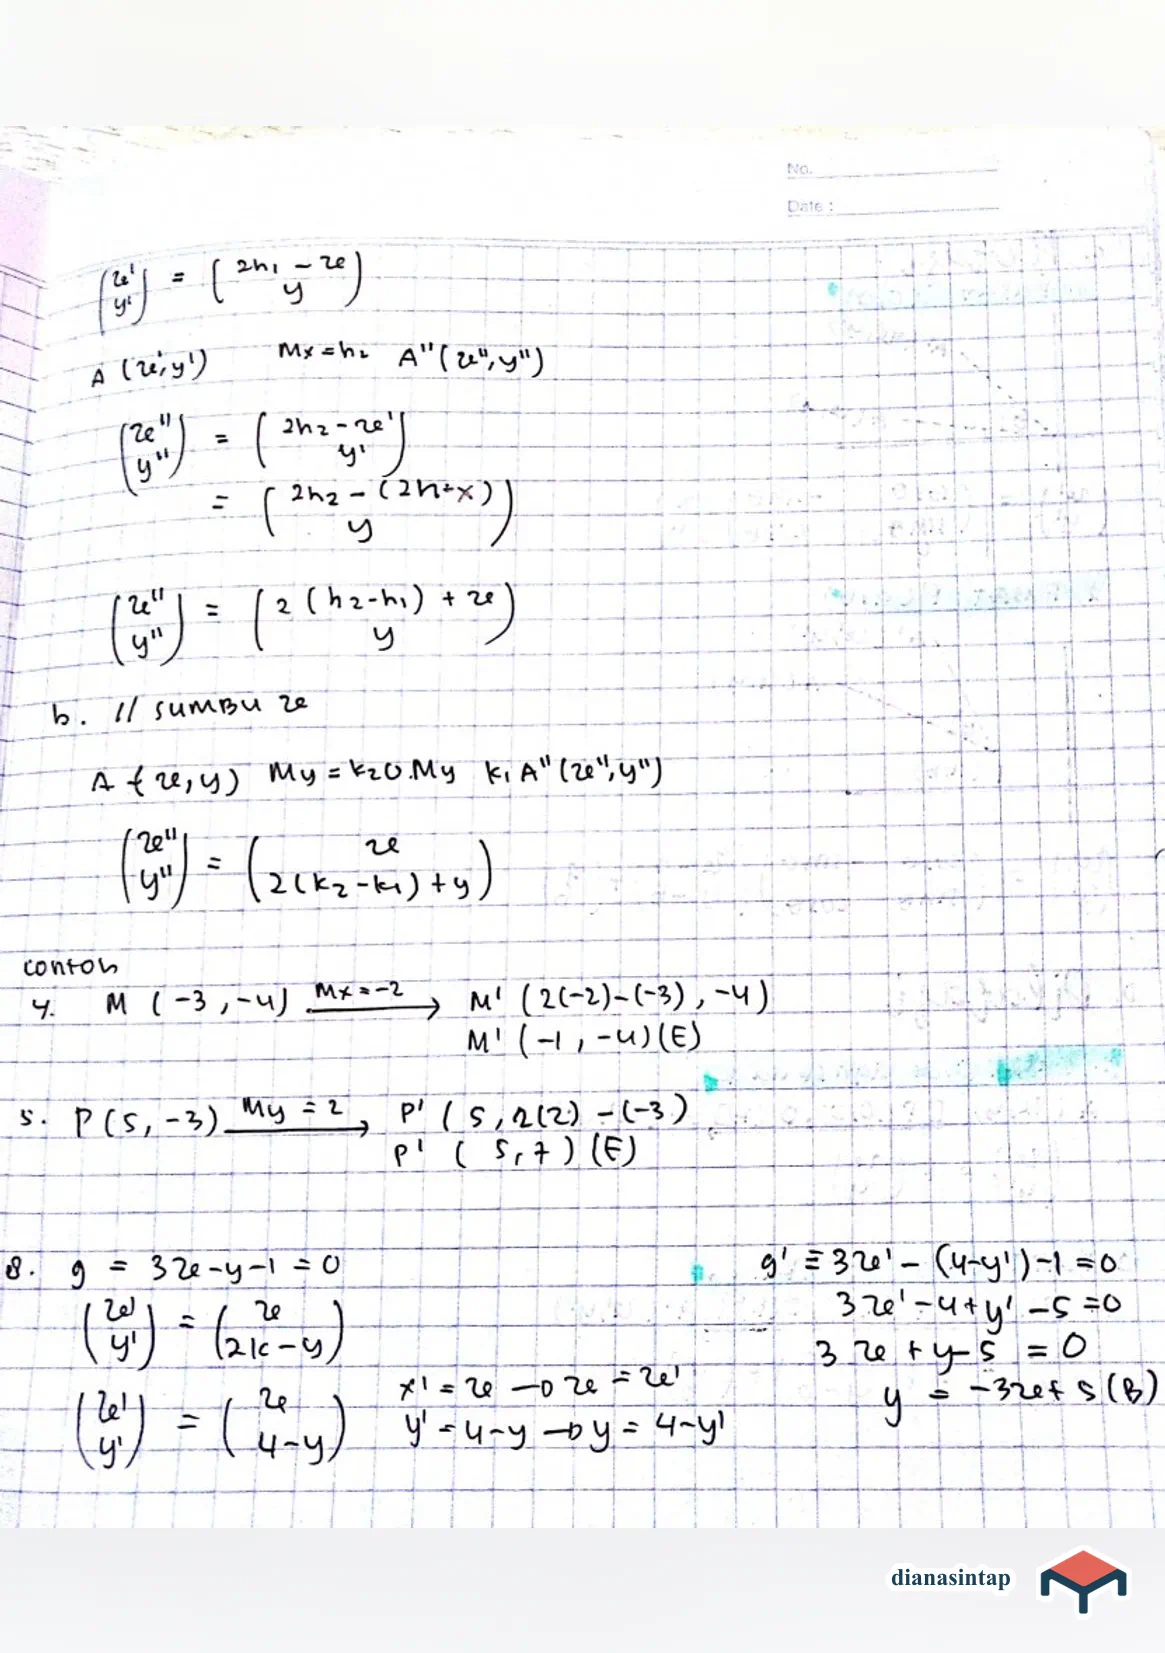 No.
Date :
(x' y') = (2h₁ - x y)
A (x', y') Mx = h₂ A"(x", y")
(x" y") = (2h₂ - x' y')
= (2h₂ - (2h-x) y)
(x" y") = (2 (h₂-h₁) + x y)
b. // SUMBU x
A (x, y) My = k₂ o My k₁ A" (x", y")
(x" y") = (x 2(k₂-k₁) + y)
contoh
4. M (-3, -4) Mx = -2 → M' (2(-2)-(-3), -4)
M' (-1, -4) (E)
5. P (5, -3) My = 2 → P' (5, 2(2) - (-3)
P' (5, 7) (E)
8. g = 3x-y-1 = 0
(x' y') = (x 2k - y)
(x' y') = (x 4-y)
x' = x → x = x'
y' = 4-y → y = 4-y'
g' ≡ 3x' - (4-y')-1 = 0
3x' - 4 + y' - 5 = 0
3x + y - 5 = 0
y = -3x + 5 (B)
dianasintap